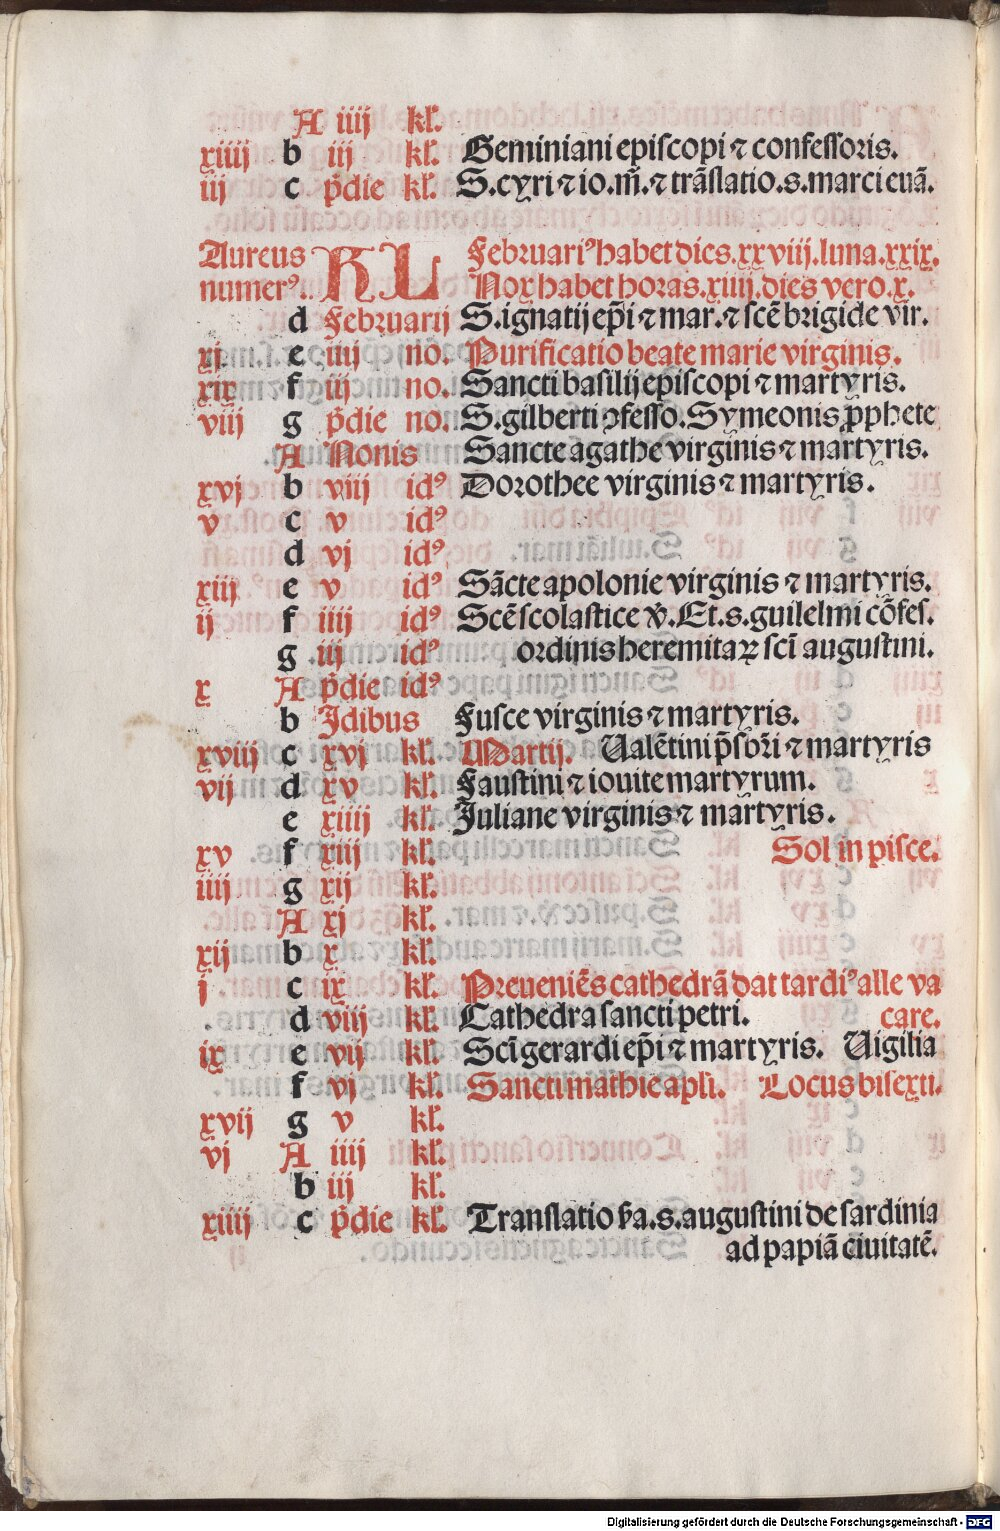 A iiij kł.
xiiij b iij kł. Geminiani episcopi ⁊ confessoris.
iij c p̄die kł. S. cyri ⁊ io. m̄. ⁊ trãslatio. s. marci euã.
Aureus KL Februariꝰ habet dies. xxviii. luna. xxix.
numerꝰ. Nox habet horas. xiiij. dies vero. x.
d Februarij S. ignatij ep̄i ⁊ mar. ⁊ scē brigide vir.
xj e iiij no. Purificatio beate marie virginis.
xix f iij no. Sancti basilij episcopi ⁊ martyris.
viij g p̄die no. S. gilberti ꝯfesso. Symeonis ꝓphete
A Nonis Sancte agathe virginis ⁊ martyris.
xvj b viij idꝰ Dorothee virginis ⁊ martyris.
v c v idꝰ
d vj idꝰ
xiij e v idꝰ Sãcte apolonie virginis ⁊ martyris.
ij f iiij idꝰ Scē scolastice v̄. Et. s. guilelmi cōfes.
g iij idꝰ ordinis heremitaꝝ sci̅ augustini.
x A p̄die idꝰ
b Idibus Fusce virginis ⁊ martyris.
xviij c xvj kł. Martij. Ualētini p̄sbr̄i ⁊ martyris
vij d xv kł. Faustini ⁊ iouite martyrum.
e xiiij kł. Juliane virginis ⁊ martyris.
xv f xiij kł. Sol in pisce.
iiij g xij kł.
A xj kł.
xij b x kł.
j c ix kł. Preueniēs cathedrã dat tardiꝰ alle va
d viij kł. Cathedra sancti petri. care.
ix e vij kł. Sci̅ gerardi ep̄i ⁊ martyris. Uigilia
f vj kł. Sancti mathie apl̄i. Locus bisexti.
xvij g v kł.
vj A iiij kł.
b iij kł.
xiiij c p̄die kł. Translatio s. augustini de sardinia
ad papiã ciuitatē.
Digitalisierung gefördert durch die Deutsche Forschungsgemeinschaft - DFG